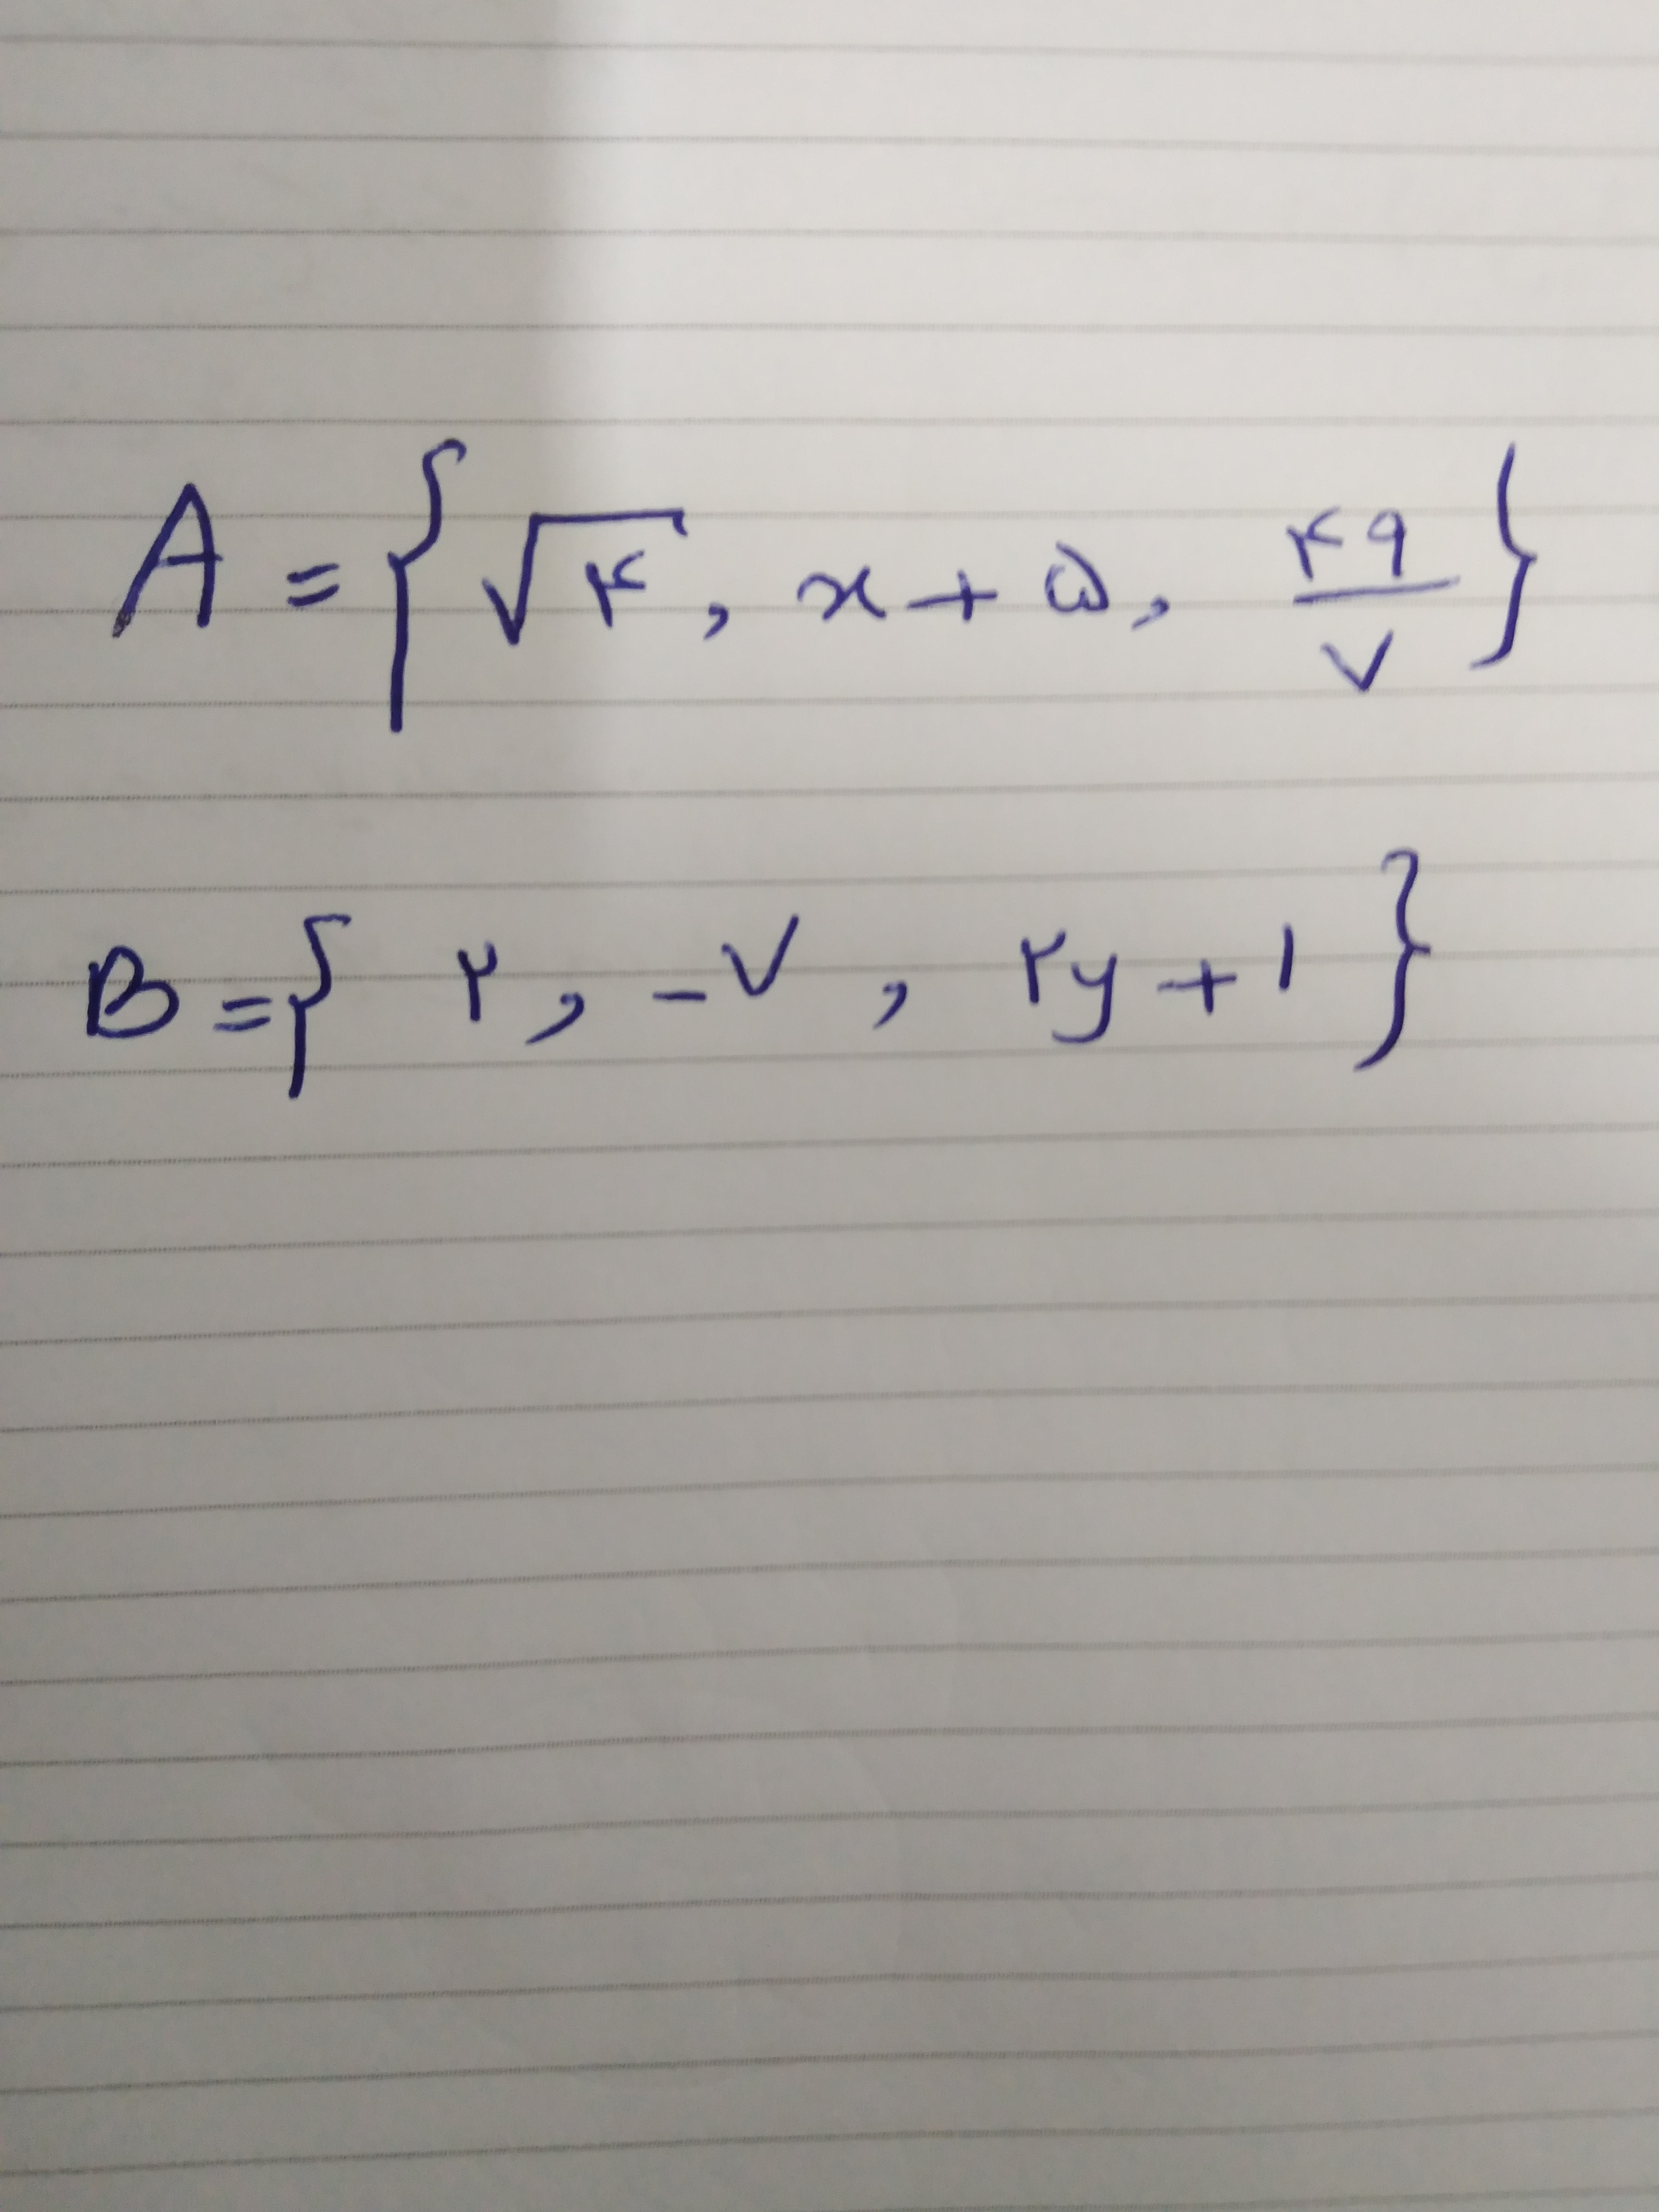 A = { √۴ , x + ۵ , ۴۹/۷ }
B = { ۲ , -۷ , ۲y + ۱ }